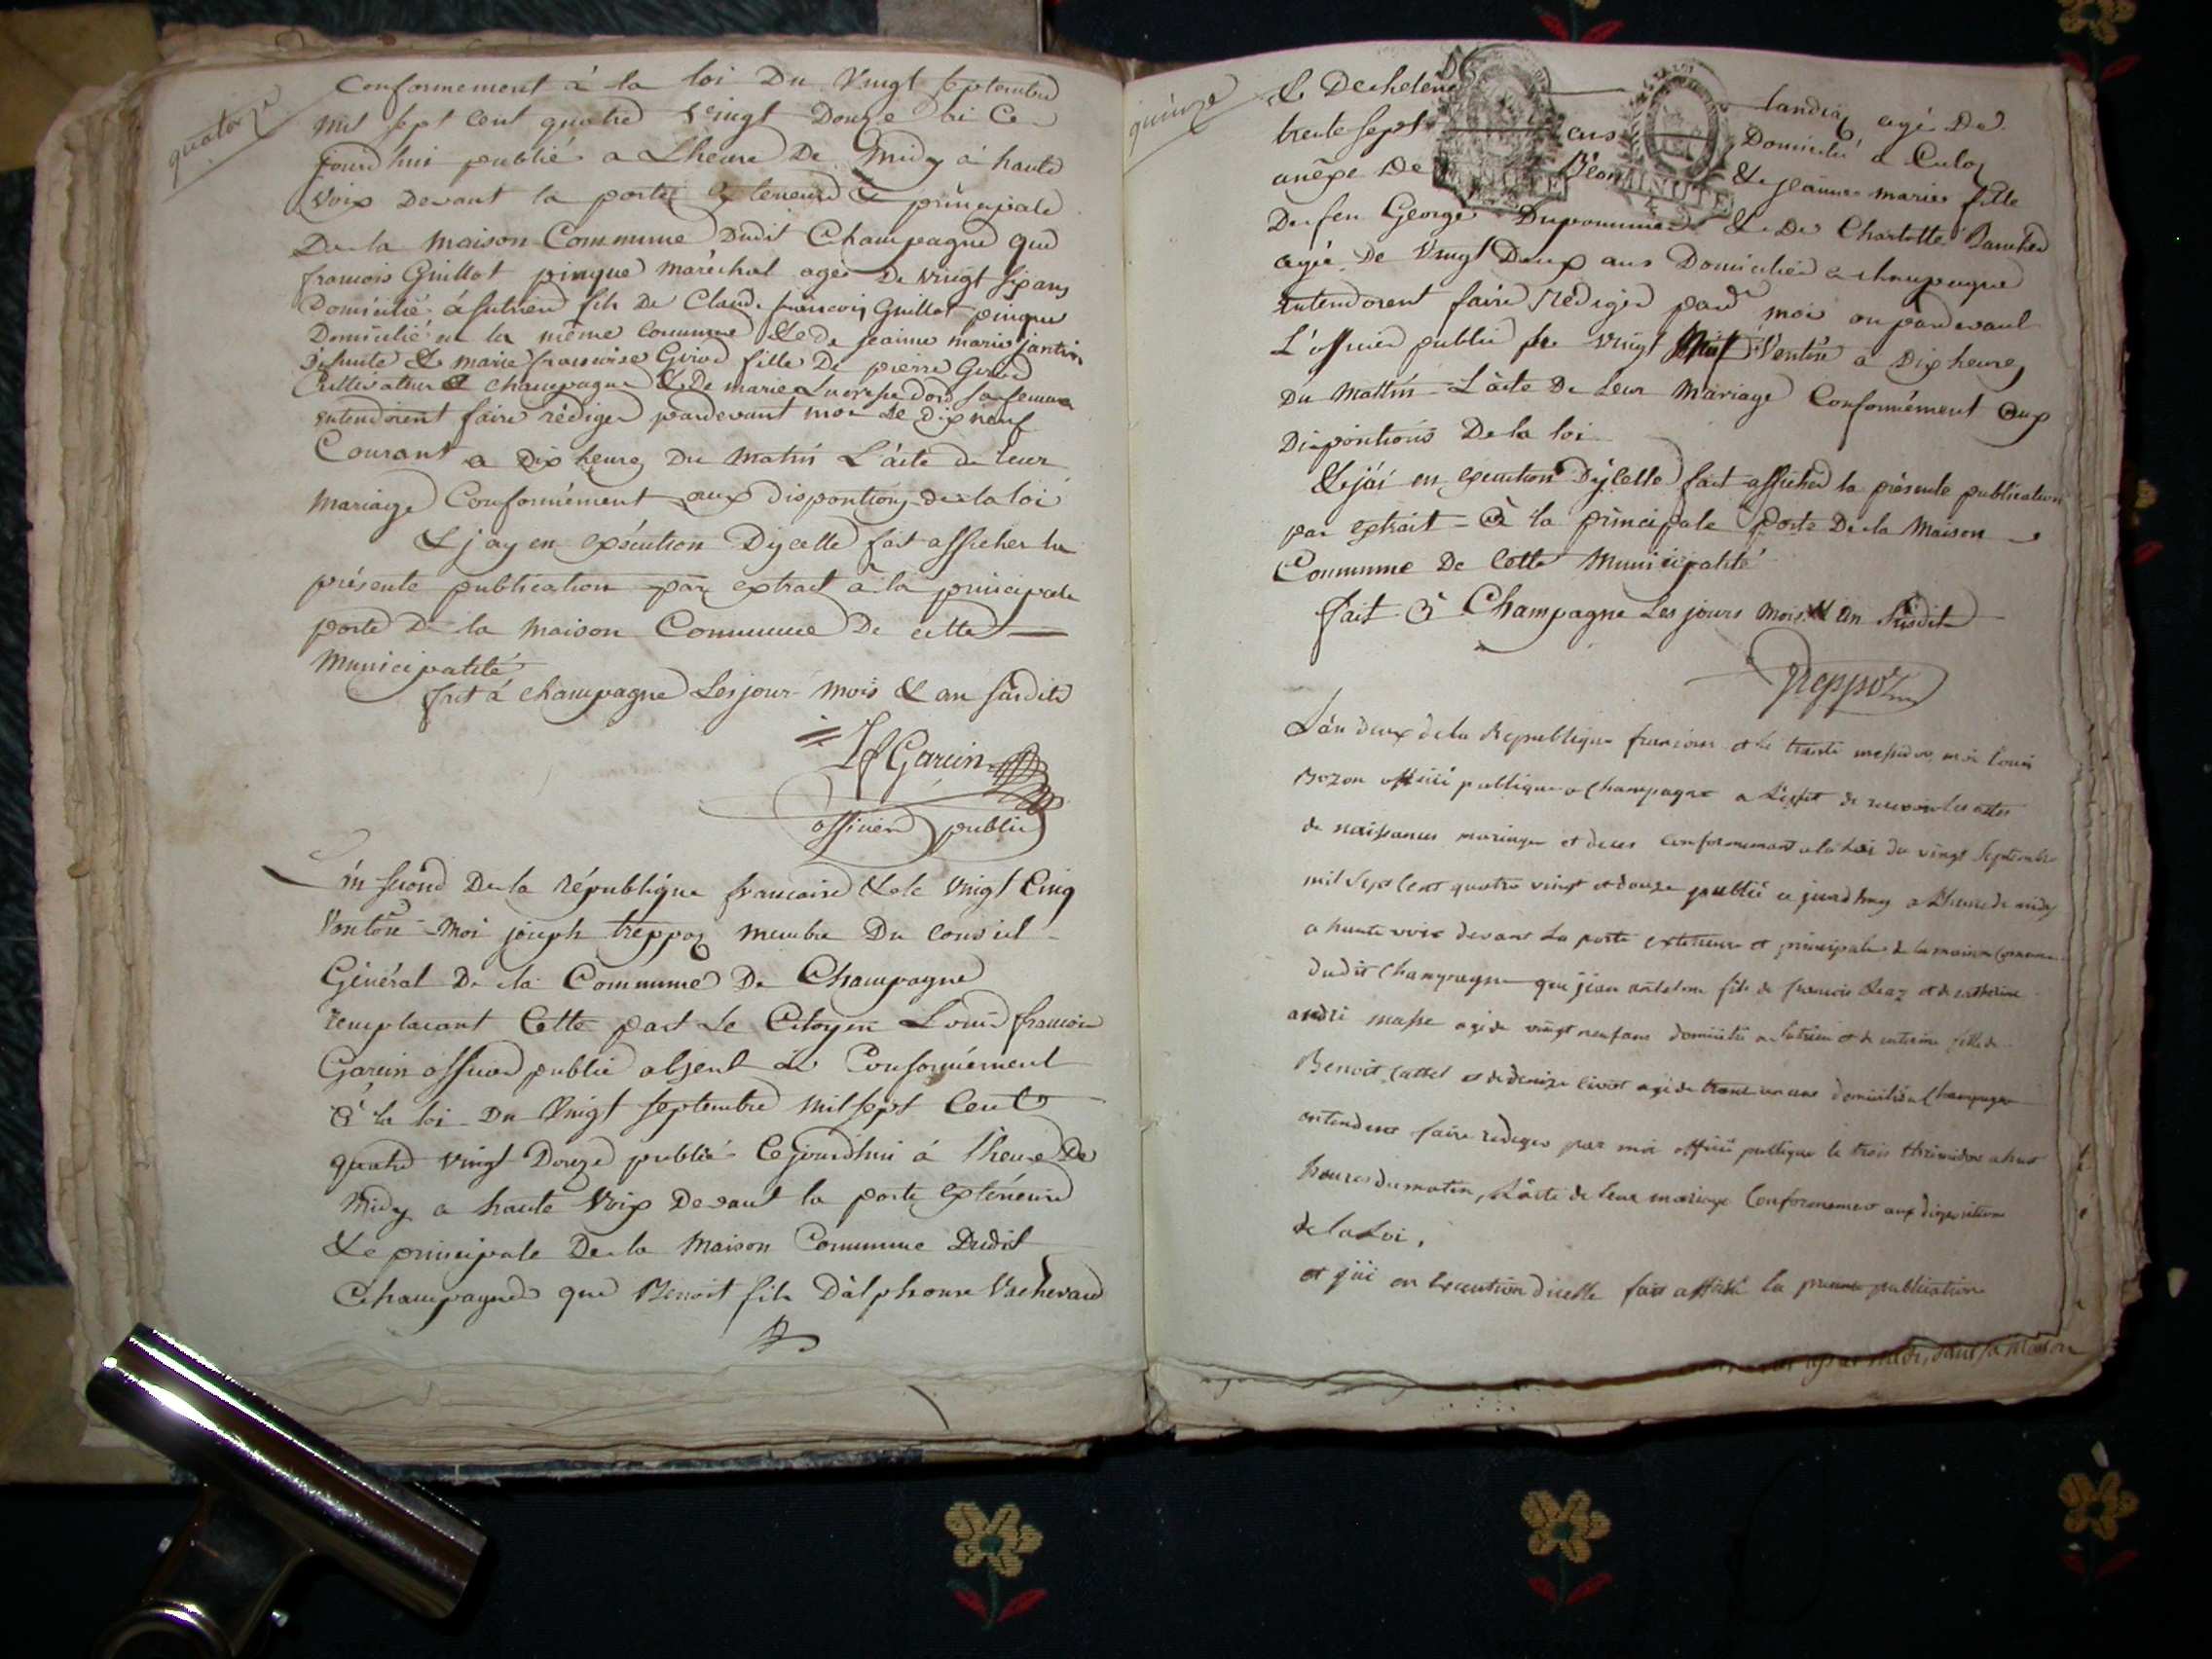 quatorze
Conformement à la loi Du Vingt Septembre
Mil sept Cent quatre Vingt Douze ai Ce
jourd'hui publié a L'heure De Midy à haute
Voix Devant la porte Exterieure & principale
De la Maison Commune Dudit Champagne que
francois Guillot pinque maréchal agé De vingt six ans
Domicilié à Sutrieu fils De Claude francois Guillot pinque
Domicilié en la même Commune & de Jeanne marie
& marie francoise Girod fille De pierre Girod
Cultivateur à Champagne & De marie sa femme
entendoient faire rédiger pardevant moi Le Dix neuf
Courant a Dix heures Du Matin L'acte de leur
Mariage Conformément aux dispositions de la loi
& j'ay en exécution Dycelle fait afficher la
présente publication par extrait à la principale
porte De la Maison Commune De cette
Municipalité
fait à Champagne Les jour mois & an susdits
Garin
officier public
L'an second De la république francaise & le vingt Cinq
Ventôse Moi joseph treppoz membre Du Conseil
Général De la Commune De Champagne
remplacant Cette part Le Citoyen Louis francois
Garin officier public absent & Conformément
à la loi Du Vingt septembre Mil sept Cent
quatre Vingt Douze publié Cejourdhui à l'heure De
Midy a haute Voix Devant la porte Extérieure
& principale De la Maison Commune Dudit
Champagne que Benoit fils D'alphonse Vachevand
quinze
& De helene landiq agé De
trente sept ans Domicilié a Culoz
anêxe De Béon & jeanne marie fille
De feu George Dupommier & De Charlotte
agée De Vingt Deux ans Domiciliée a champagne
entendoient faire rédiger par moi ou pardevant
L'officier public le vingt Ventôse a Dix heures
Du Mattin L'acte De Leur Mariage Conformément aux
Dispositions De la loi
& j'ai en execution Dycelle fait afficher la présente publication
par extrait à la principale Porte De la Maison
Commune De Cette Municipalité
fait à Champagne Les jours mois & an Susdit
Treppoz
L'an deux de la Republique francoise et le trente messidor, moi louis
Bozon officié publique a Champagne a L'effet de recevoir les actes
de naissances mariages et deces conformement a la Loi du vingt Septembre
mil Sept Cent quatre vingt et douze publié ce jourdhuy a L'heure de midy
a haute voix devant La porte exterieure et principale de la maison Commune
dudit Champagne que jean antelme fils de francois et de catherine
andré masse agé de vingt neuf ans domicilié a Sutrieu et de fille de
Benoit Cattel et de denize agé de trente un ans domicilié a Champagne
entendent faire rediger par moi officié publique le trois thermidor a huit
heures du matin, L'acte de leur mariage Conformement aux dispositions
de la Loi,
et j'ai en Execution dicelle fait affiché la presente publication
MINUTE